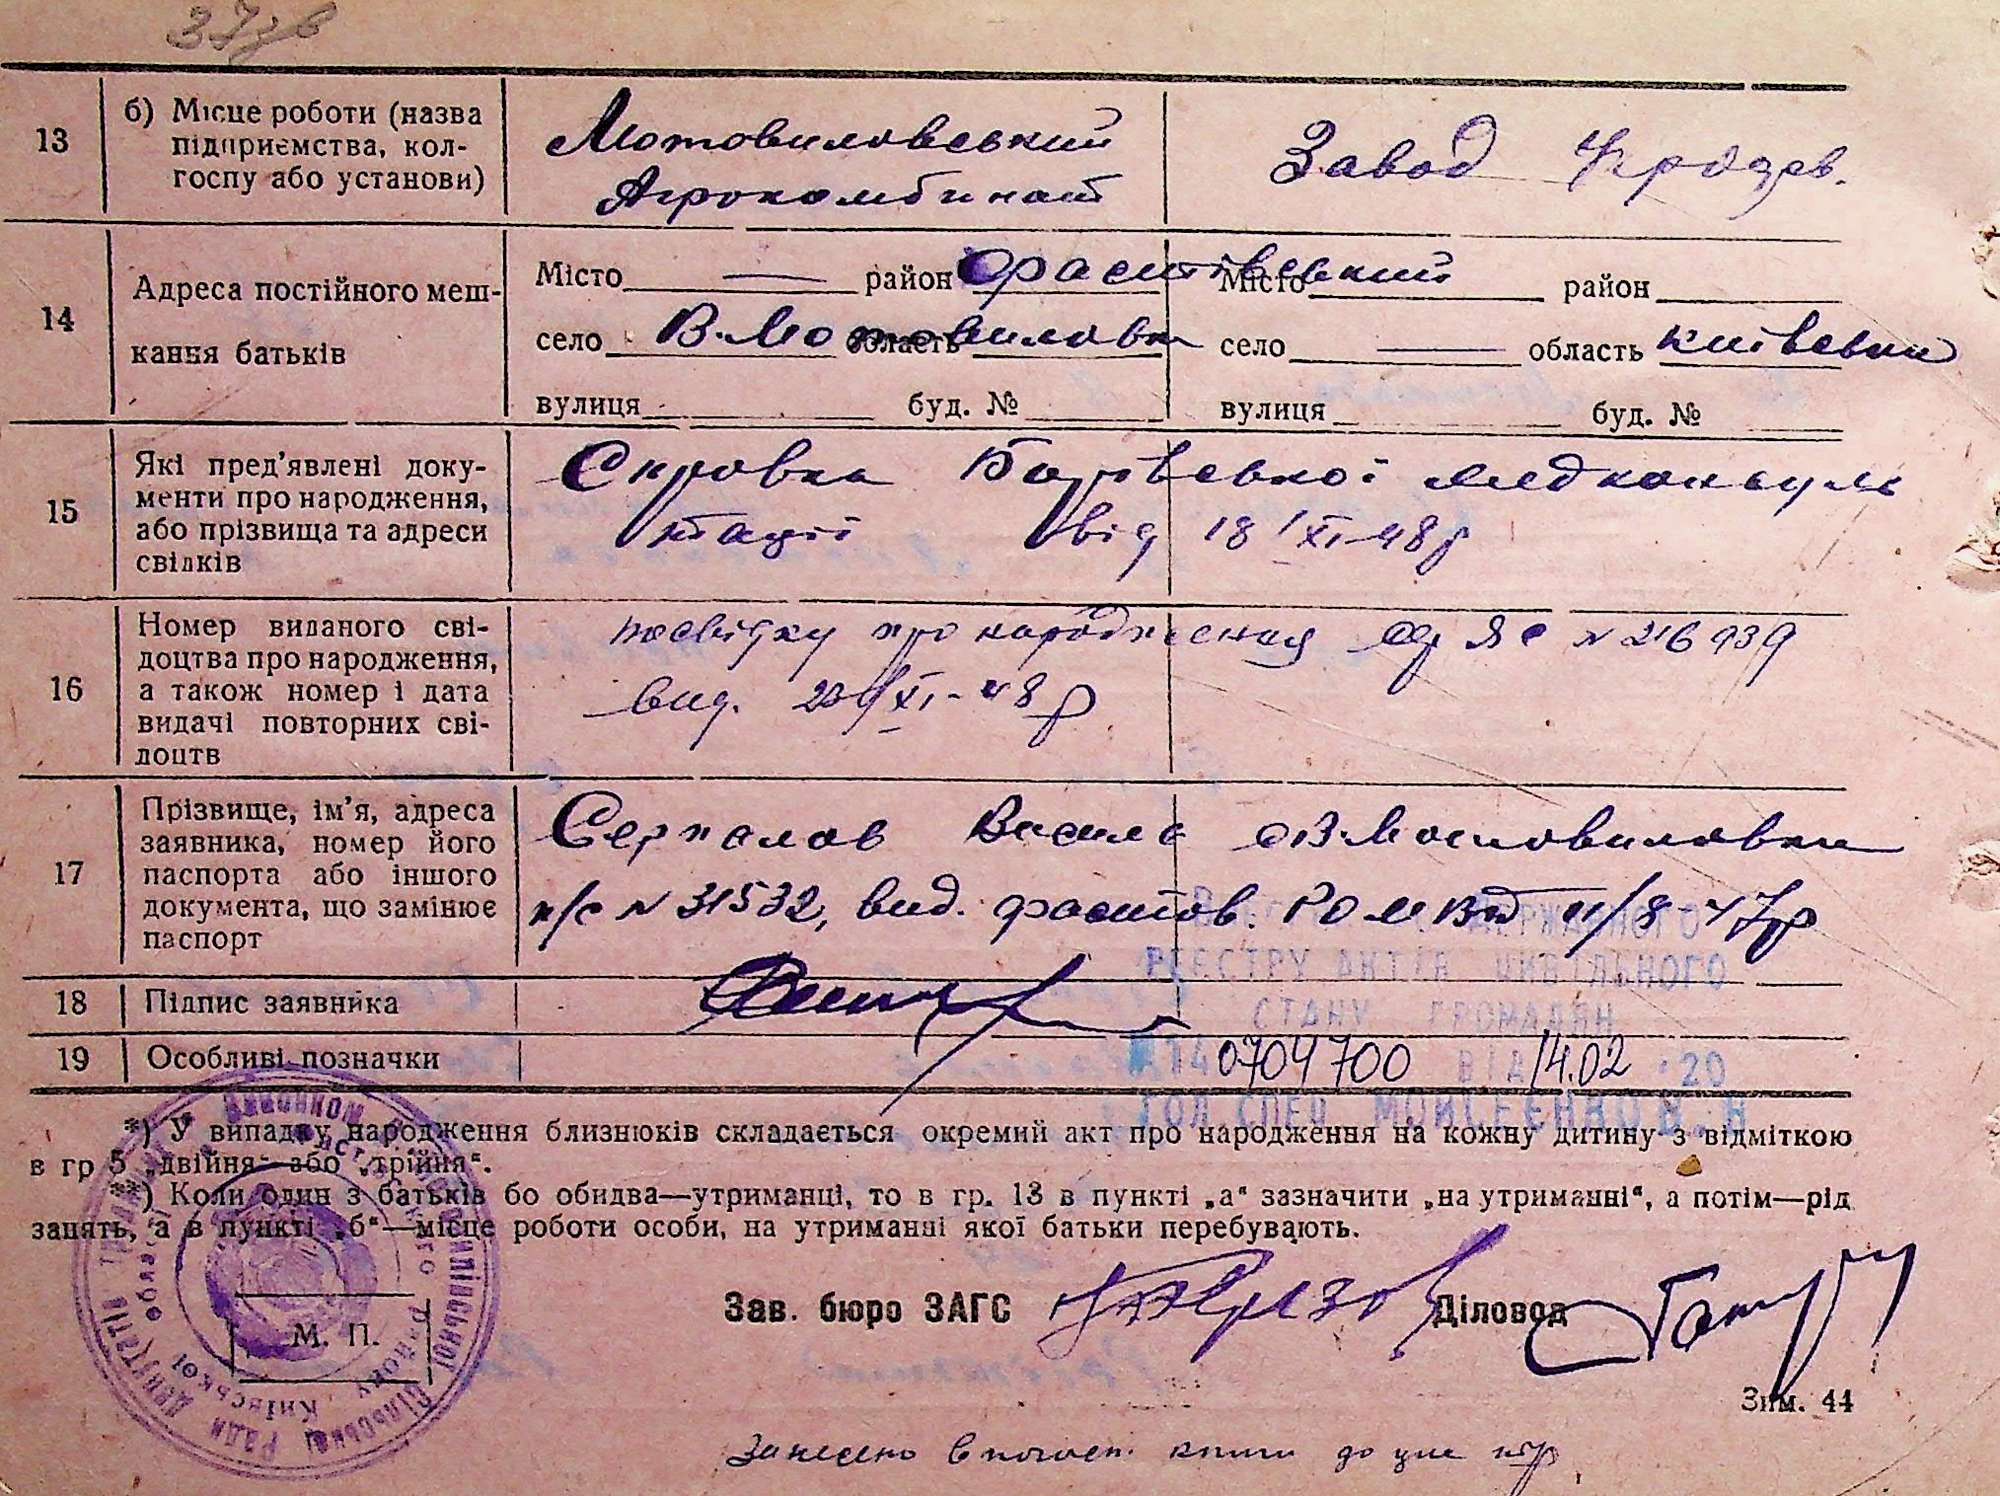 37зв
13
б) Місце роботи (назва
підприємства, кол-
госпу або установи)
Мотовиловський
Агрокомбинат
Завод
14
Адреса постійного меш-
кання батьків
Місто — район Фастівський
село В. Мотовиловка область
вулиця буд. №
Місто район
село — область Київська
вулиця буд. №
15
Які пред'явлені доку-
менти про народження,
або прізвища та адреси
свідків
Справка Боровської медконсуль
тації від 18/XI-48р
16
Номер виданого сві-
доцтва про народження,
а також номер і дата
видачі повторних сві-
доцтв
посвідку про народження ЯС № 216939
вид. 23/XI-48р
17
Прізвище, ім'я, адреса
заявника, номер його
паспорта або іншого
документа, що замінює
паспорт
Василь с В. Мотовиловка
п/с № 31532, вид. Фастов. РО МВД 11/8-47р
ДЕРЖАВНОГО
РЕЄСТРУ АКТІВ ЦИВІЛЬНОГО
СТАНУ ГРОМАДЯН
18
Підпис заявника
19
Особливі позначки
14 0704700 ВІД 14.02 .20
ГОЛ.СПЕЦ. МОЙСЕЄНКО В.Н
*) У випадку народження близнюків складається окремий акт про народження на кожну дитину з відміткою
в гр 5 „двійня“ або „трійня“.
**) Коли один з батьків бо обидва—утриманці, то в гр. 13 в пункті „а“ зазначити „на утриманні“, а потім—рід
занять, а в пункті „б“—місце роботи особи, на утриманні якої батьки перебувають.
Зав. бюро ЗАГС
Діловод
М. П.
Зим. 44
Занесено в книги до